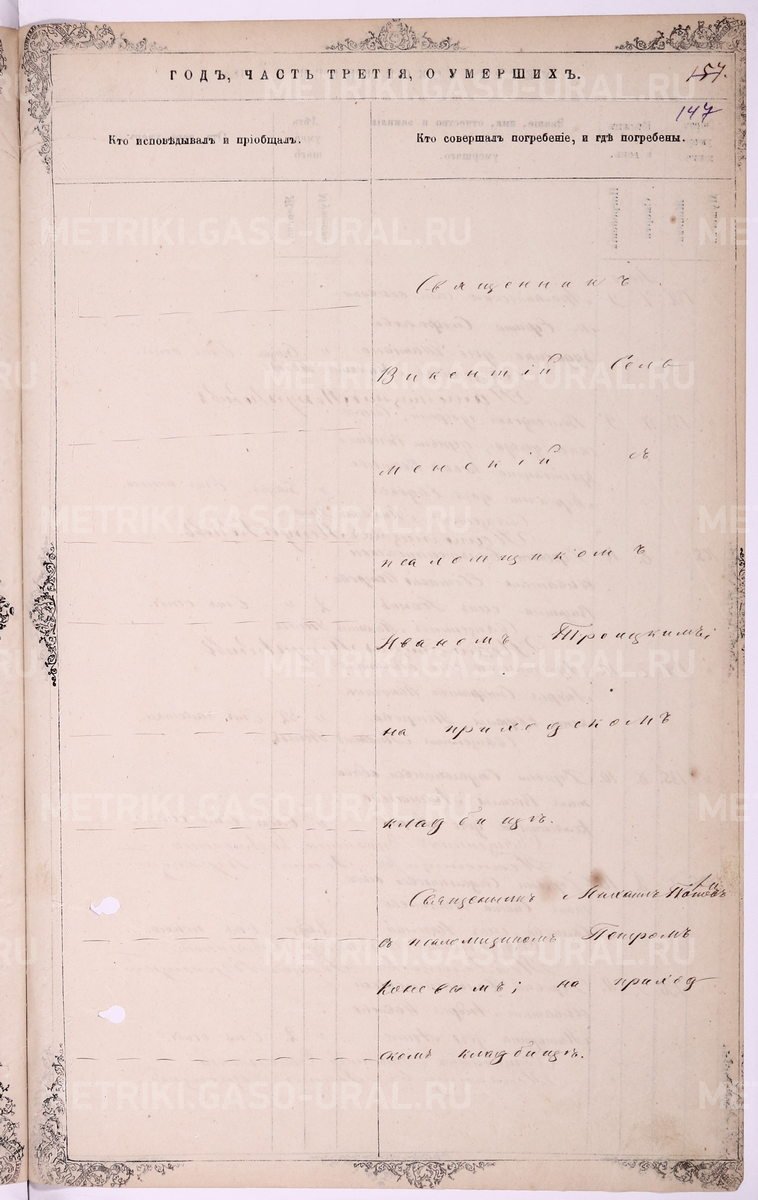 ГОДЪ, ЧАСТЬ ТРЕТІЯ, О УМЕРШИХЪ.
157.
147
Кто исповѣдывалъ и пріобщалъ.
Кто совершалъ погребеніе, и гдѣ погребены.
Священникъ
Викентій Сель
менскій съ
псаломщикомъ
Иваномъ Троицкимъ;
на приходскомъ
кладбищѣ.
Священникъ
съ псаломщикомъ Петромъ
Коневымъ; на приход
скомъ кладбищѣ.
METRIKI.GASO-URAL.RU